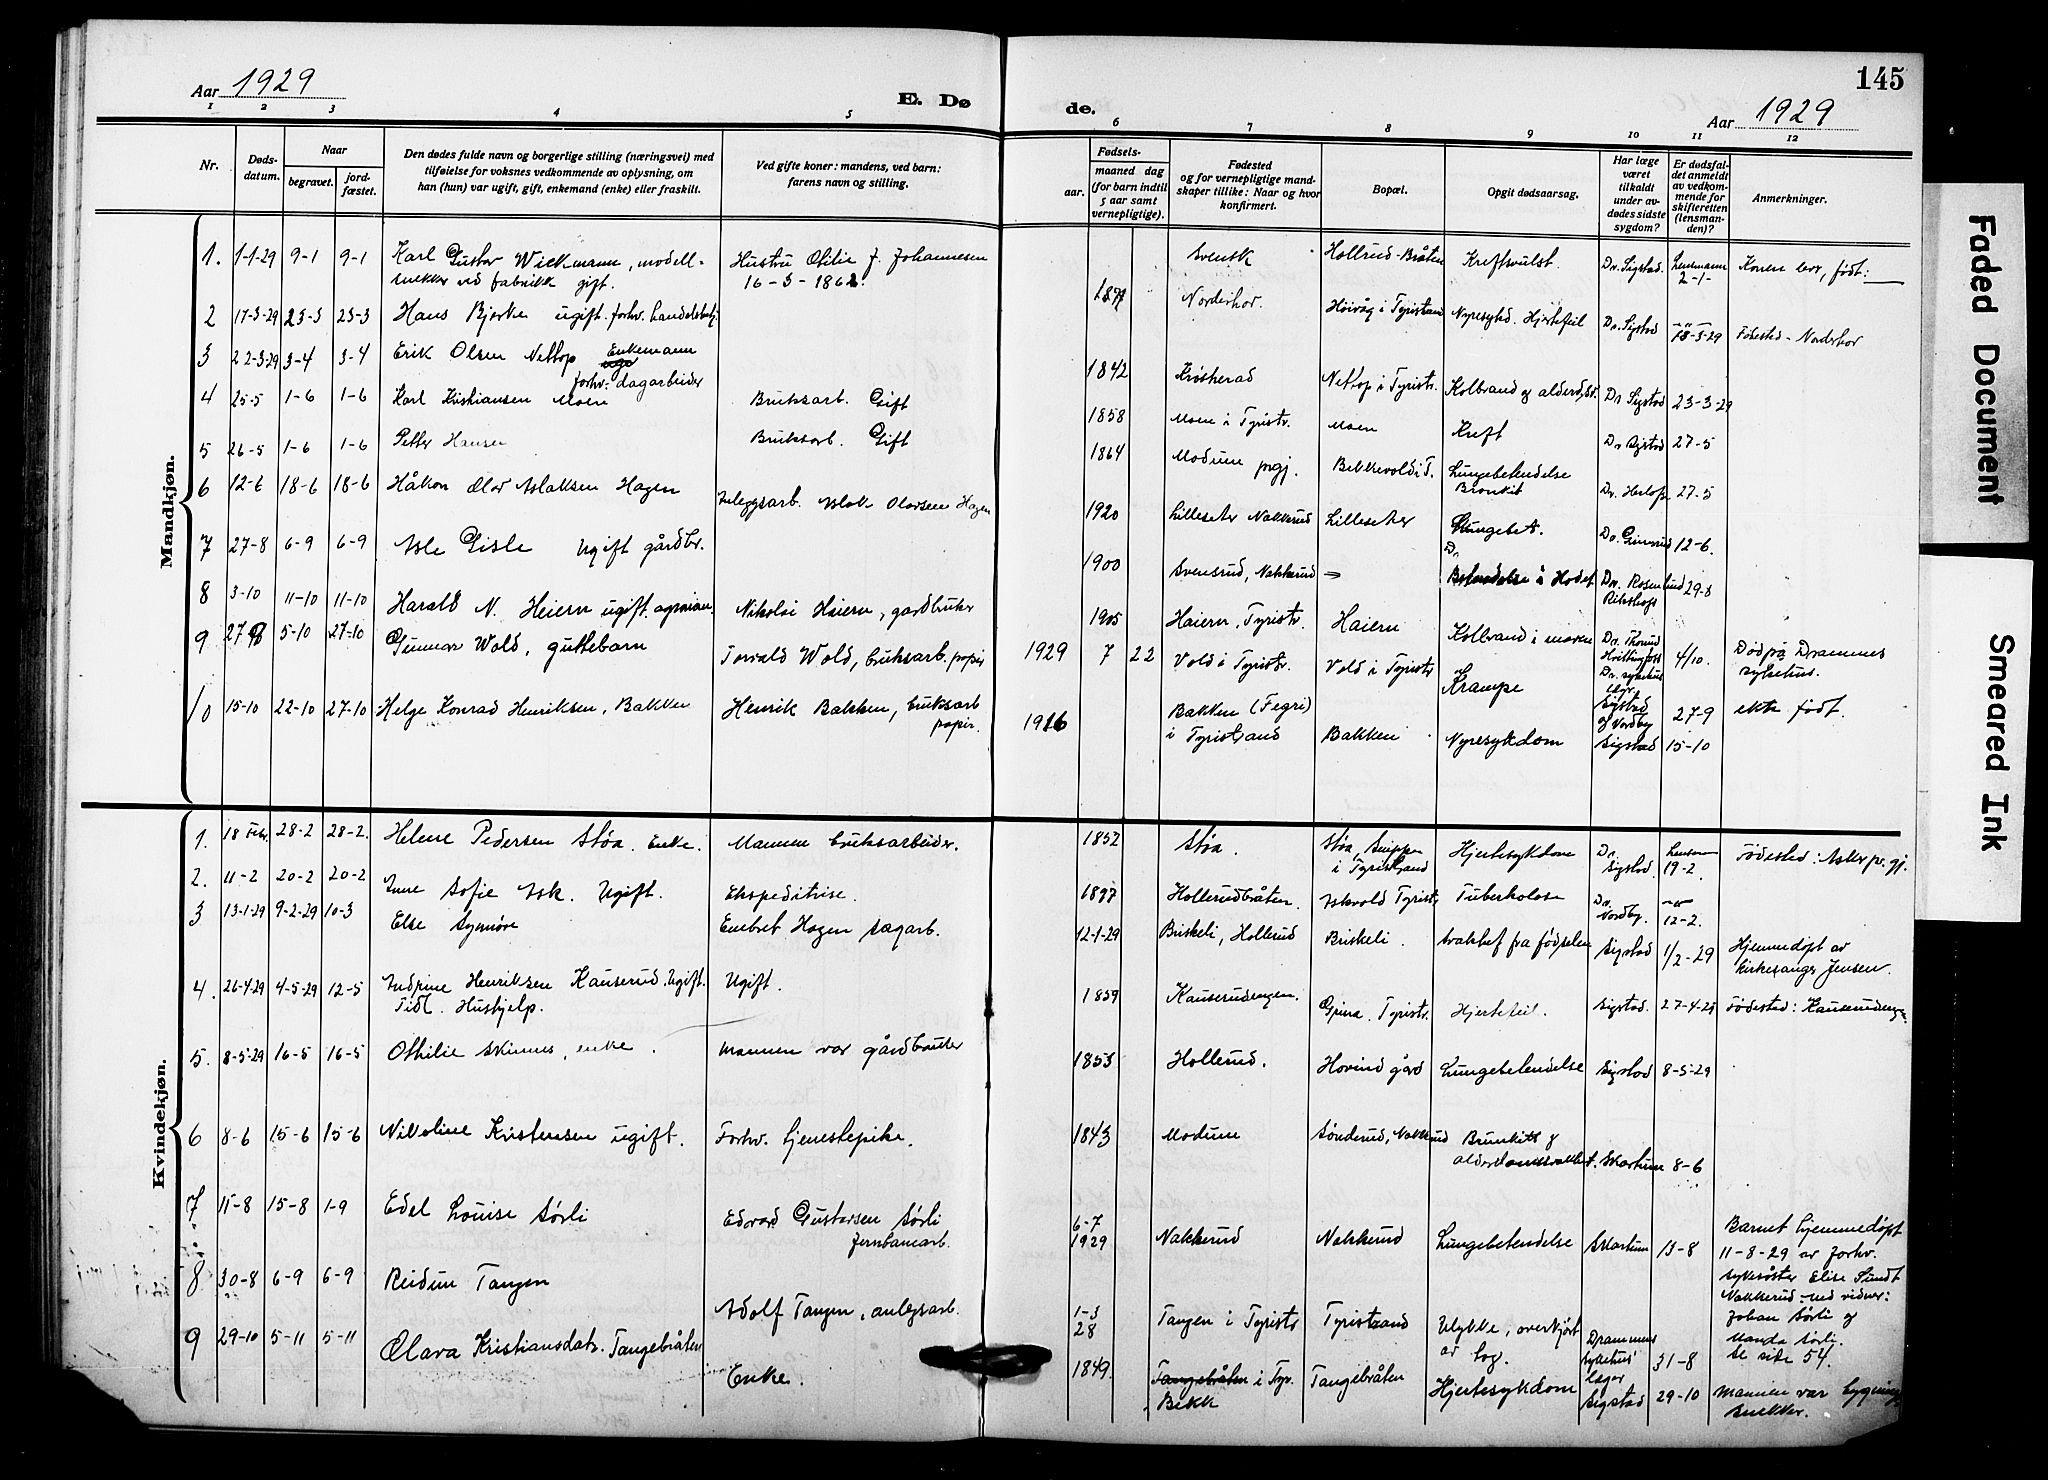 145
Aar 1929
E. Døde.
Aar 1929
1 2 3 4 5 6 7 8 9 10 11 12
Nr.
Døds-datum.
Naar
begravet.
jord-fæstet.
Den dødes fulde navn og borgerlige stilling (næringsvei) med
tilføielse for voksnes vedkommende av oplysning, om
han (hun) var ugift, gift, enkemand (enke) eller fraskilt.
Ved gifte koner: mandens, ved barn:
farens navn og stilling.
Fødsels-
aar.
maaned dag
(for barn indtil
5 aar samt
vernepligtige).
Fødested
og for vernepligtige mand-
skaper tillike: Naar og hvor
konfirmert.
Bopæl.
Opgit dødsaarsag.
Har læge
været
tilkaldt
under av-
dødes sidste
sygdom?
Er dødsfal-
det anmeldt
av vedkom-
mende for
skifteretten
(lensman-
den)?
Anmerkninger.
Mandkjøn.
1. 1-1-29 9-1 9-1 Karl Gustav Wickmann, modell- Hustru Otilie J. Johannesen Svensk Hollrud-Bråten Kreftsvulst. Dr. Sigstad. Lensmann Konen lev, født:
snekker ved fabrikk gift. 16-3-1862. 2-1-
2 17-3-29 23-3 23-3 Hans Bjerke ugift. forhv. handelsbetj. 1871 Norderhov. Høivåg i Tyristrand Nyresykd. Hjertefeil Dr. Sigstad 18-3-29 Fødested - Norderhov
3 22-3-29 3-4 3-4 Erik Olsen Nettop Enkemann
forhv. dagarbeider 1842 Krødsherad Nettop i Tyristr. Kolbrand og alderd. Dr Sigstad 23-3-29
4 25-5 1-6 1-6 Karl Kristiansen Moen Bruksarb. Gift 1858 Moen i Tyristr. Moen Kreft Dr Sigstad 27-5
5 26-5 1-6 1-6 Petter Hansen Bruksarb. Gift 1864 Modum prgj. Bekkevold i T. Lungebetendelse
Bronkit 27-5
6 12-6 18-6 18-6 Håkon Olav Aslaksen Hagen Anleggsarb. Aslak Olavsen Hagen 1920 Lilleseter Nakkerud Lilleseter Lungebet. 12-6.
7 27-8 6-9 6-9 Asle Gisle Ugift gårdbr. 1900 Svensrud, Nakkerud Betendelse i Hodet Dr. Rosenlund 29-8
Rikshosp
8 3-10 11-10 11-10 Harald N. Heiern ugift Nikolai Haiern, gardbruker 1905 Haiern, Tyristr. Haiern Kolbrand i maven 4/10. Død på Drammens
sykehus.
9 27 5-10 27-10 Gunnar Wold, guttebarn Torvald Wold, bruksarb. papir 1929 7 22 Vold i Tyristr. Vold i Tyristr Krampe Sigstad
og Nordby 27-9 ekte født.
10 15-10 22-10 27-10 Helge Konrad Henriksen, Bakken Henrik Bakken, bruksarb
papir. 1916 Bakken (Fegri)
i Tyristrand Bakken Nyresykdom Sigstad 15-10
Kvindekjøn.
1. 18 Febr. 28-2 28-2. Helene Pedersen Støa. Enke. Mannen bruksarbeider. 1852 Støa. Støa,
i Tyristrand Hjertesykdom Dr.
Sigstad. 19-2. Fødested: Asker pr.gj.
2. 11-2 20-2 20-2 Anne Sofie Ask. Ugift. Ekspeditrise. 1897 Hollerudbråten. Askvold Tyristr. Tuberkolose Dr.
Nordby. 12-2.
3 13-1-29 9-2-29 10-3 Else Synnøve Enebret Hagen sagarb. 12-1-29 Briskeli, Hollerud Briskeli. svakhet fra fødselen Sigstad 1/2-29 Hjemmedøpt av
kirkesanger Jensen.
4. 26-4-29 4-5-29 12-5 Andrine Henriksen Kauserud. Ugift. Ugift.
Tidl. Hushjelp. 1859 Kauserudengen. Grina. Tyristr. Hjertefeil. Sigstad. 27-4-29 Fødested: Kauserudengen.
5. 8-5-29 16-5 16-5 Othilie Skinnes, enke. Mannen var gårdbruker 1853 Hollerud. Hovind gård Lungebetendelse Sigstad 8-5-29
6 8-6 15-6 15-6 Nikoline Kristensen ugift. Forhv. tjenestepike. 1843 Modum Sønderud, Nakkerud Brunkitt og
alderdomssvakhet. Skartum 8-6
7 11-8 15-8 1-9 Edel Louise Sørli Edvard Gustavsen Sørli
Jernbanearb. 6-7
1929 Nakkerud Nakkerud Lungebetendelse Skartum 13-8 Barnet hjemmedøpt
11-8-29 av forhv.
sykesøster Elise Sundt
Nakkerud med vidner:
Johan Sørli og
Wanda Sørli.
Se side 54.
8 30-8 6-9 6-9 Reidun Tangen Adolf Tangen, anlegsarb. 1-3
28 Tangen i Tyristr Tyristrand Ulykke, overkjørt
av tog. Drammens
sykehus'
læger 31-8
9 29-10 5-11 5-11 Olava Kristiansdatr. Tangebråten Enke. 1849. Tangebråten i Tyr.
Bekk Tangebråten Hjertesykdom Sigstad 29-10 Mannen var bygnings
snekker.
Faded Document
Smeared Ink